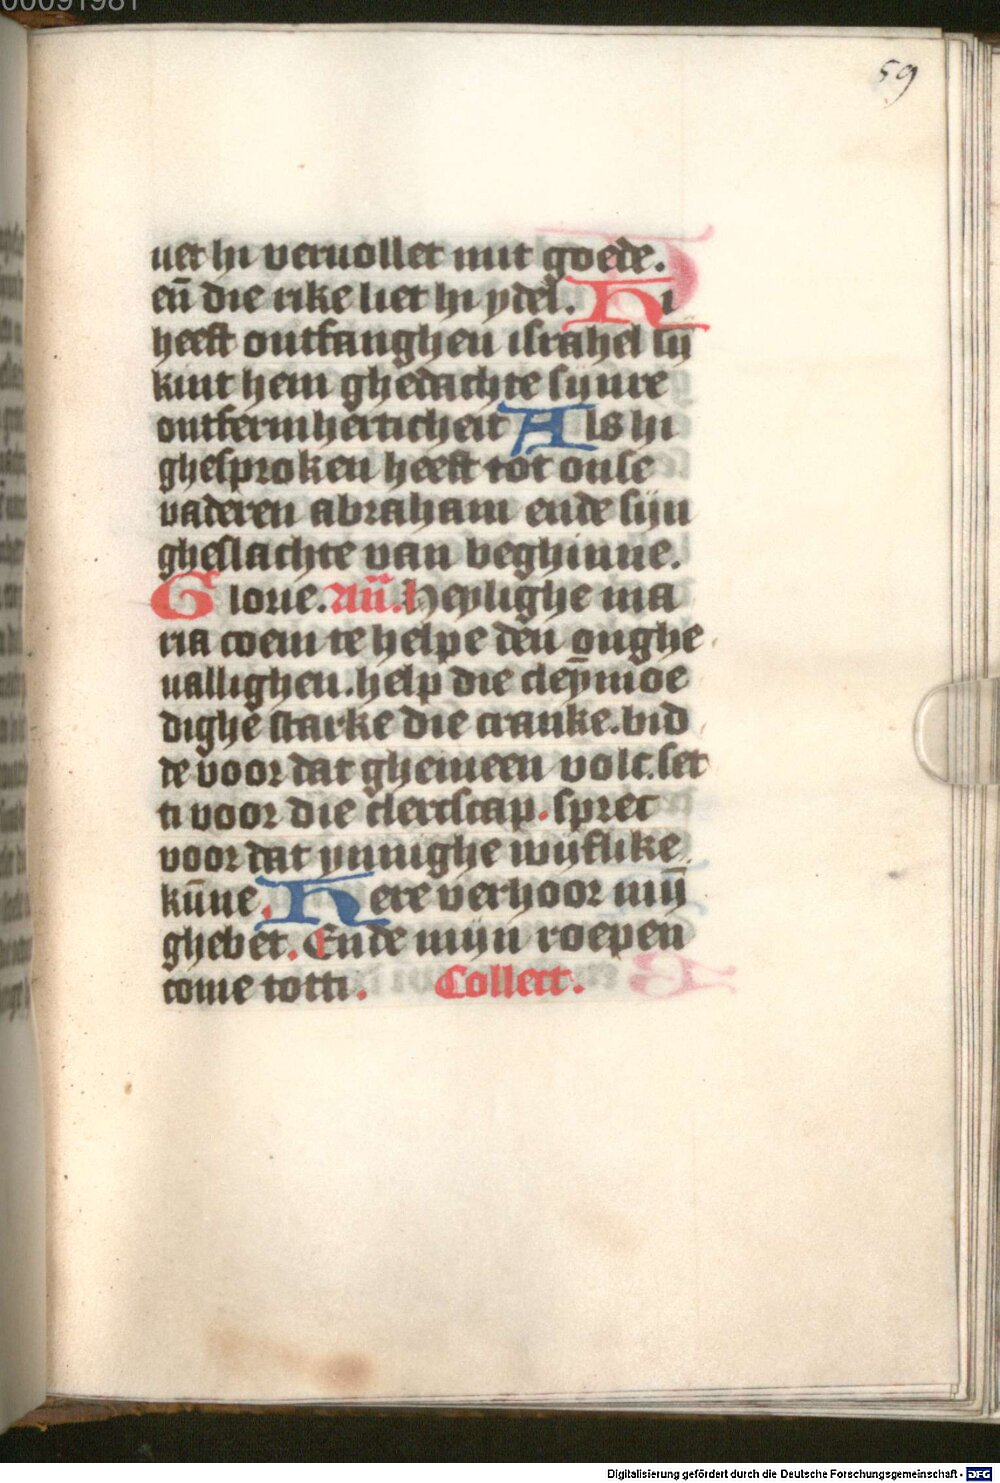 00091981
59
uet hi veruollet mit goede.
eñ die rike liet hi ydel. Hi
heeft ontfanghen israhel sij̄
kint hem ghedachte sijnre
ontfermherticheit Als hi
ghesproken heeft tot onse
vaderen abraham ende sijn
gheslachte van beghinne.
Glorie. Añ. Heylighe ma
ria coem te helpe den onghe
uallighen. help die cleynmoe
dighe starke die cranke. bid
de voor dat ghemeen volc. set
ti voor die clercscap. sprec
voor dat ynnighe wijflike
kūne. Here verhoor mij̄
ghebet. Ende mijn roepen
come totti. Collect.
Digitalisierung gefördert durch die Deutsche Forschungsgemeinschaft - DFG